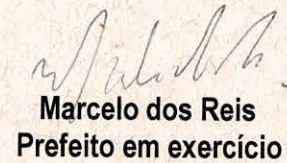 Marcelo dos Reis
Prefeito em exercício